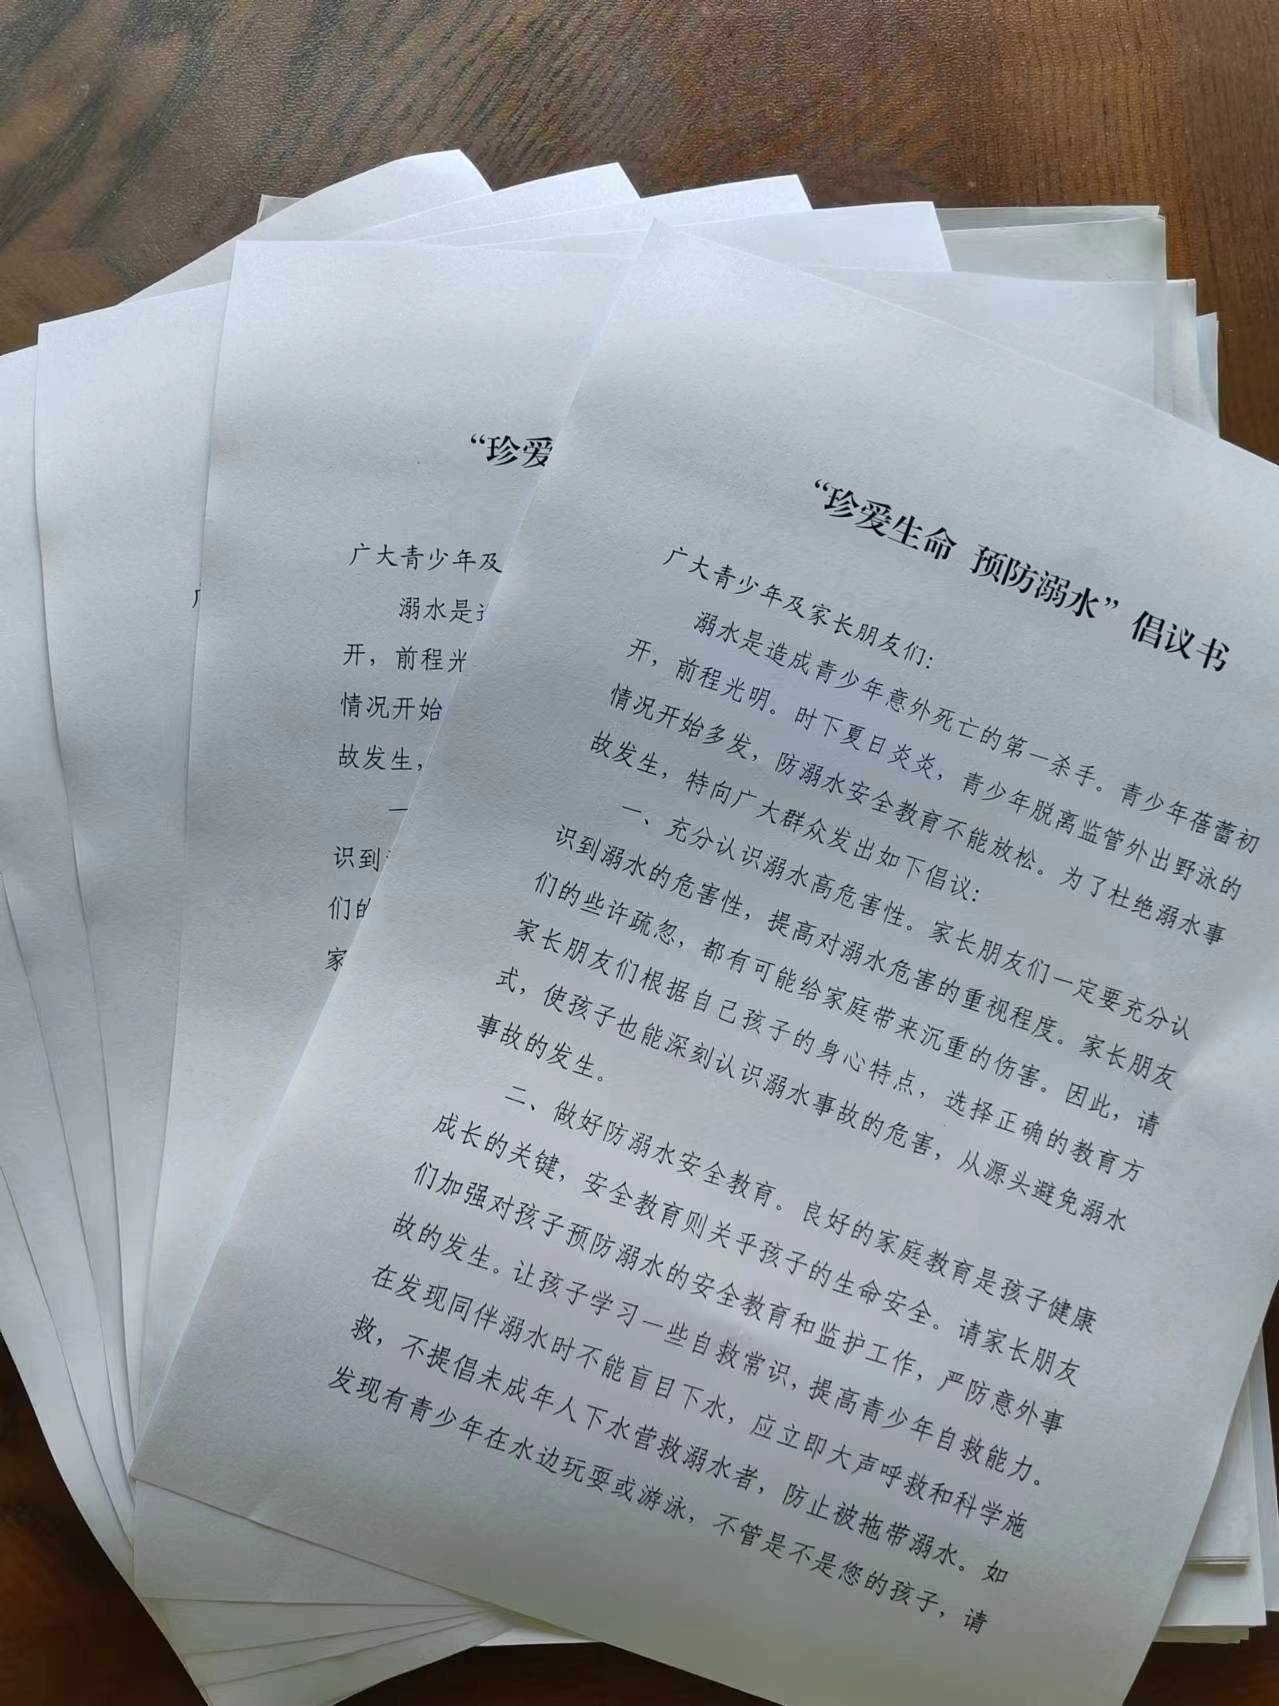 “珍爱生命 预防溺水”倡议书
广大青少年及家长朋友们：
溺水是造成青少年意外死亡的第一杀手。青少年蓓蕾初
开，前程光明。时下夏日炎炎，青少年脱离监管外出野泳的
情况开始多发，防溺水安全教育不能放松。为了杜绝溺水事
故发生，特向广大群众发出如下倡议：
一、充分认识溺水高危害性。家长朋友们一定要充分认
识到溺水的危害性，提高对溺水危害的重视程度。家长朋友
们的些许疏忽，都有可能给家庭带来沉重的伤害。因此，请
家长朋友们根据自己孩子的身心特点，选择正确的教育方
式，使孩子也能深刻认识溺水事故的危害，从源头避免溺水
事故的发生。
二、做好防溺水安全教育。良好的家庭教育是孩子健康
成长的关键，安全教育则关乎孩子的生命安全。请家长朋友
们加强对孩子预防溺水的安全教育和监护工作，严防意外事
故的发生。让孩子学习一些自救常识，提高青少年自救能力。
在发现同伴溺水时不能盲目下水，应立即大声呼救和科学施
救，不提倡未成年人下水营救溺水者，防止被拖带溺水。如
发现有青少年在水边玩耍或游泳，不管是不是您的孩子，请
“珍爱
广大青少年及
溺水是
开，前程光
情况开始
故发生，
一
识到
们的
家